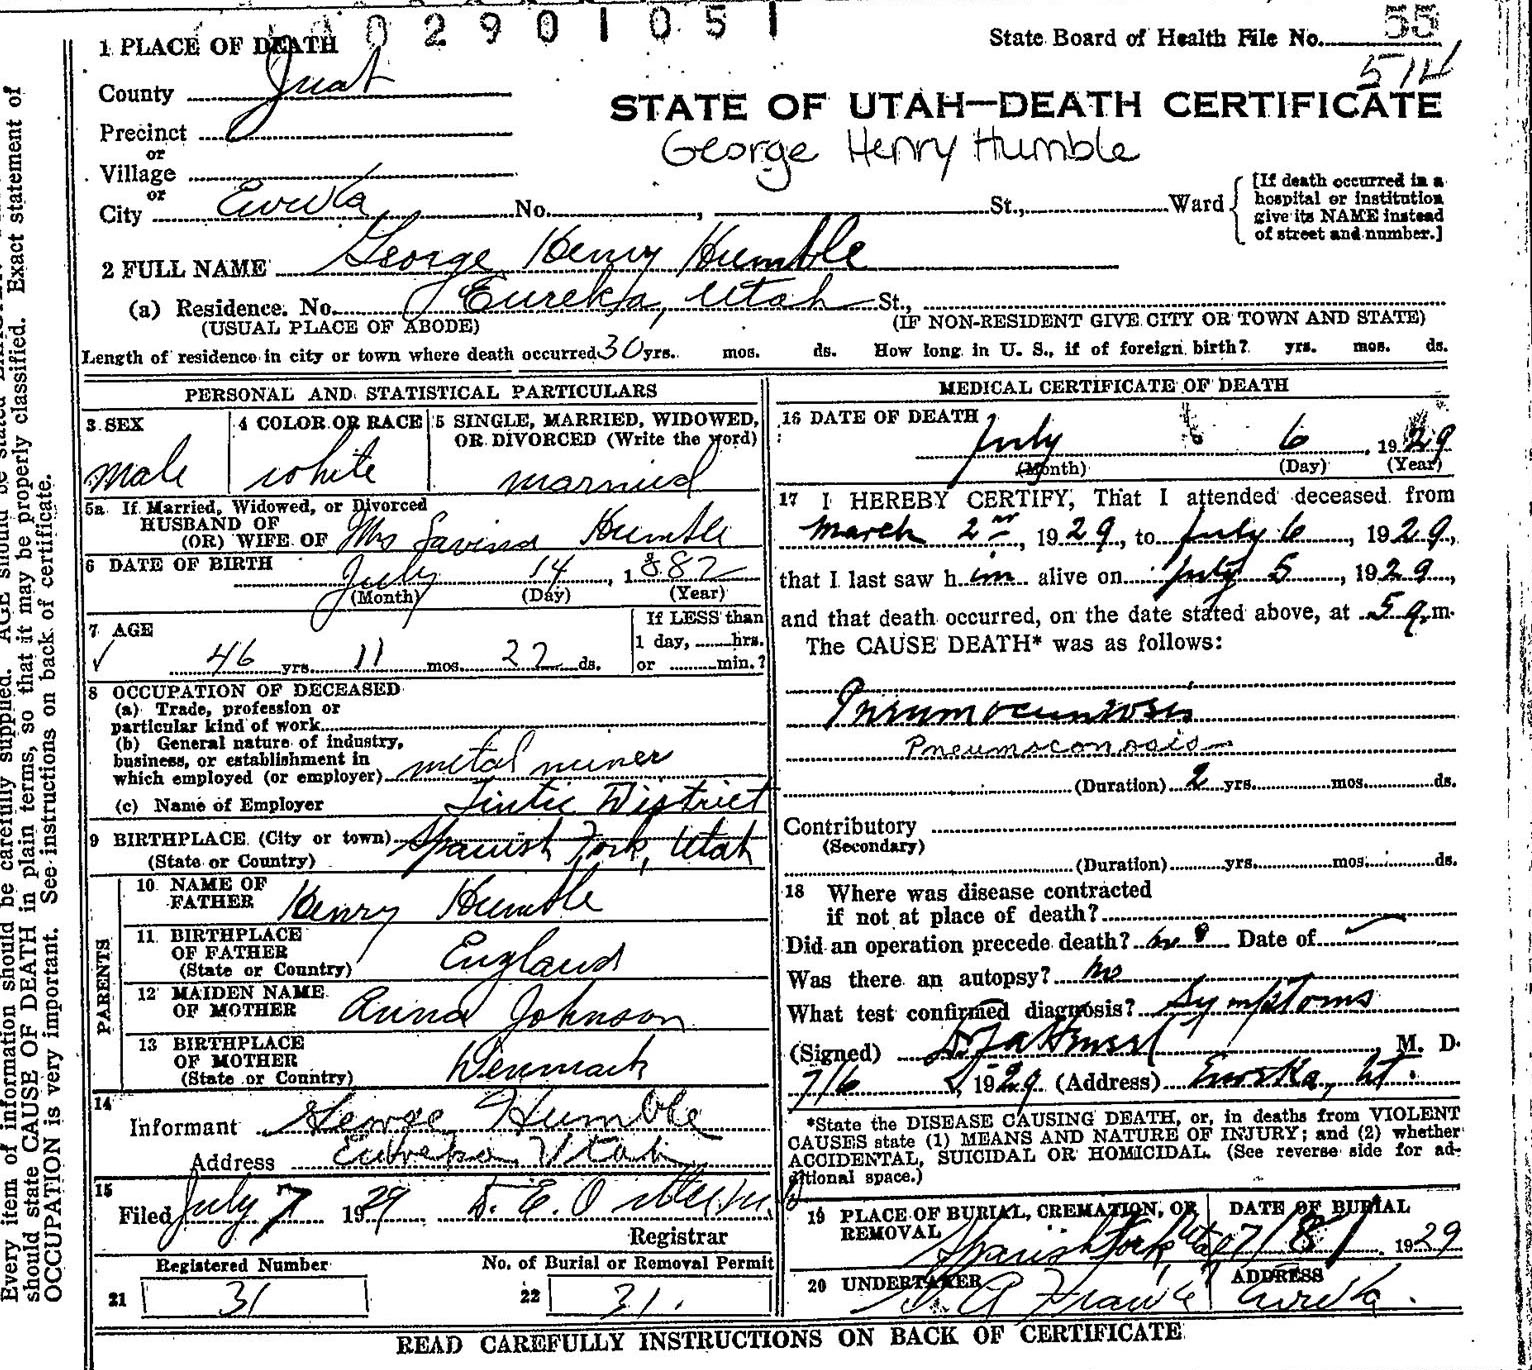 0 2 9 0 1 0 5 1
1 PLACE OF DEATH
State Board of Health File No. 55
514
County Juab
STATE OF UTAH—DEATH CERTIFICATE
Precinct
George Henry Humble
or
Village
or
City Eureka No. , St., Ward
[If death occurred in a hospital or institution give its NAME instead of street and number.]
2 FULL NAME George Henry Humble
(a) Residence. No. Eureka, Utah St.,
(USUAL PLACE OF ABODE) (IF NON-RESIDENT GIVE CITY OR TOWN AND STATE)
Length of residence in city or town where death occurred 30 yrs. mos. ds. How long in U. S., if of foreign birth? yrs. mos. ds.
PERSONAL AND STATISTICAL PARTICULARS
3 SEX
male
4 COLOR OR RACE
white
5 SINGLE, MARRIED, WIDOWED,
OR DIVORCED (Write the word)
married
5a If Married, Widowed, or Divorced
HUSBAND OF
(OR) WIFE OF Mrs Lavina Humble
6 DATE OF BIRTH
July 14, 1882
(Month) (Day) (Year)
7 AGE
46 yrs. 11 mos. 22 ds.
If LESS than
1 day, hrs.
or min.?
8 OCCUPATION OF DECEASED
(a) Trade, profession or
particular kind of work
(b) General nature of industry,
business, or establishment in
which employed (or employer) metal miner
(c) Name of Employer Tintic District
9 BIRTHPLACE (City or town) Spanish Fork, Utah
(State or Country)
PARENTS
10 NAME OF
FATHER Henry Humble
11 BIRTHPLACE
OF FATHER England
(State or Country)
12 MAIDEN NAME
OF MOTHER Anna Johnson
13 BIRTHPLACE
OF MOTHER Denmark
(State or Country)
14
Informant George Humble
Address Eureka Utah
15
Filed July 7 1929
Registrar
Registered Number
21 31
No. of Burial or Removal Permit
22 31.
MEDICAL CERTIFICATE OF DEATH
16 DATE OF DEATH
July 6, 1929
(Month) (Day) (Year)
17 I HEREBY CERTIFY, That I attended deceased from
March 2nd, 1929, to July 6, 1929,
that I last saw him alive on July 5, 1929,
and that death occurred, on the date stated above, at 5 a.m.
The CAUSE DEATH* was as follows:
Pneumoconiosis
Pneumoconosis
(Duration) 2 yrs. mos. ds.
Contributory
(Secondary)
(Duration) yrs. mos. ds.
18 Where was disease contracted
if not at place of death?
Did an operation precede death? no Date of
Was there an autopsy? no
What test confirmed diagnosis? Symptoms
(Signed) , M. D.
7/6, 1929 (Address) Eureka, Ut.
*State the DISEASE CAUSING DEATH, or, in deaths from VIOLENT
CAUSES state (1) MEANS AND NATURE OF INJURY; and (2) whether
ACCIDENTAL, SUICIDAL OR HOMICIDAL. (See reverse side for ad-
ditional space.)
19 PLACE OF BURIAL, CREMATION, OR
REMOVAL
Spanish Fork, Utah
DATE OF BURIAL
7/8/ 1929
20 UNDERTAKER
ADDRESS
Eureka.
READ CAREFULLY INSTRUCTIONS ON BACK OF CERTIFICATE
Every item of information should be carefully supplied. AGE should be stated
should state CAUSE OF DEATH in plain terms, so that it may be properly classified. Exact statement of
OCCUPATION is very important. See instructions on back of certificate.